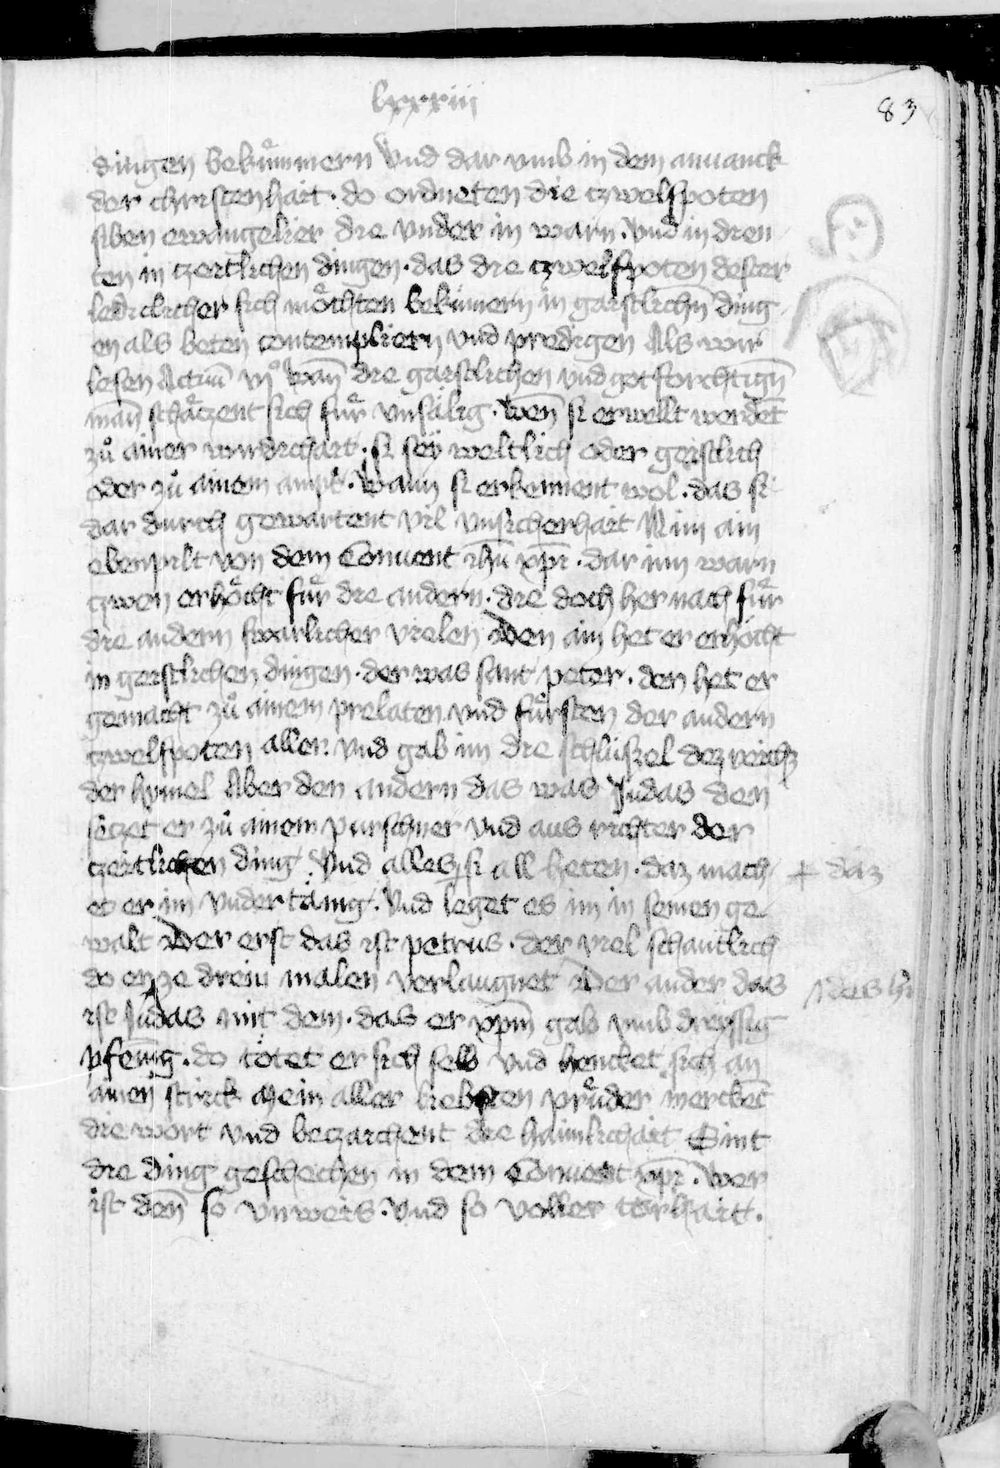 lxxxiii
83
dingen bekümmern Vnd dar vmb in dem anuanck
der christenhait · do ordneten die czwelfpoten
siben ewangelier die vnder in warn · Vnd in dien
ten in czeitlichen dingen · das die czwelfpoten dester
ledicleicher sich möchten bekümern in gaistlichn̄ ding
en als beten contempliern vnd predigen Als wir
lesen Actuū vjº Wan̄ die gaistlichen vnd got forchtign̄
man̄ schäczent sich für vnsälig · Wen̄ si erwellt werdēt
zů ainer wirdichait · si seÿ weltlich oder geistlich
oder zů ainem ampt · Wann si erkennent wol · das si
dar durch gewartent vil vnsicherhait Nim ain
ebenpilt von dem Conuent ihū xp̄i · dar inn warn
czwen erhöcht für die andern · die doch her nach für
die andern swärlicher vielen Den ain het er erhöcht
in geistlichen dingen · der was sant peter · den het er
gemacht zů ainem prelaten vnd fürsten der andern
czwelfpoten allen Vnd gab im die schlüszel dez reichs
der hymel Aber den andern das was Judas den
seczet er zů ainem purschner Vnd aus richter der
czeitlichen ding · Vnd alles si all heten · daz mach
+ daz
et er im vndertänig · Vnd leget es im in seinen ge
walt Der erst das ist petrus · der viel schantlich
do er ze dreiu malen verlaugnet Der ander das
ist Judas mit dem · das er xp̄m gab vmb dreyssig
pfenīg · do tötet er sich selb vnd hencket sich an
ainen strick Mein aller liebsten prüder merckēt
die wort vnd beczaichent die haimlichait Sint
die ding geschechen in dem Conuent xp̄i · Wer
ist den̄ so vnweis · Vnd so voller torhait ·